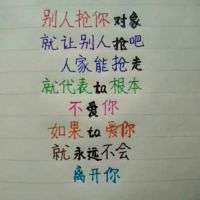 别人抢你对象
就让别人抢吧
人家能抢走
就代表ta根本
不爱你
如果ta爱你
就永远不会
离开你